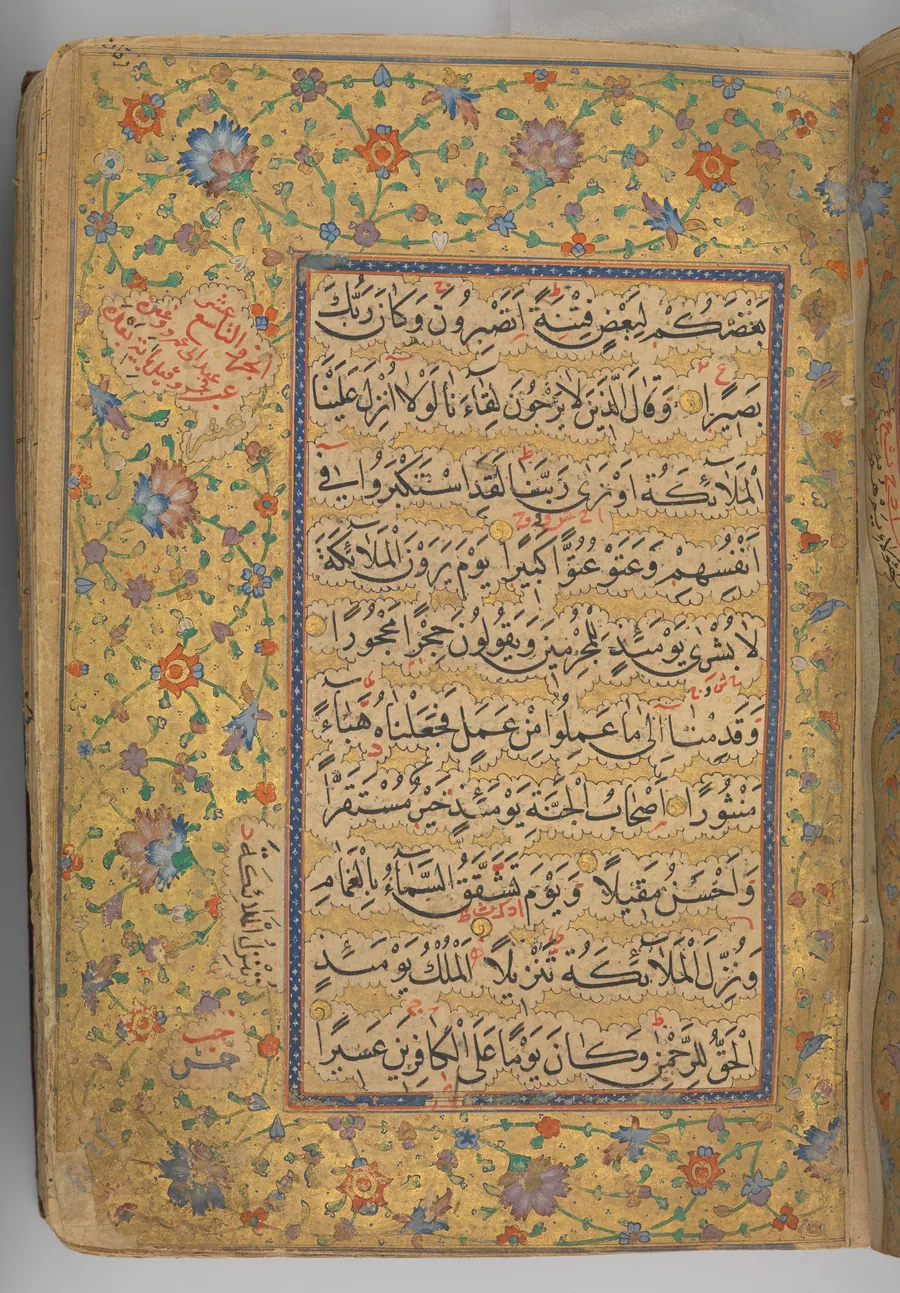 بَعْضَكُمْ لِبَعْضٍ فِتْنَةً اَتَصْبِرُونَ وَكَانَ رَبُّكَ
بَصِيرًا وَقَالَ الَّذِينَ لَا يَرْجُونَ لِقَاءَنَا لَوْلَا اُنْزِلَ عَلَيْنَا
الْمَلَائِكَةُ اَوْ نَرٰى رَبَّنَا لَقَدِ اسْتَكْبَرُوا فِى
اَنْفُسِهِمْ وَعَتَوْ عُتُوًّا كَبِيرًا يَوْمَ يَرَوْنَ الْمَلَائِكَةَ
لَا بُشْرٰى يَوْمَئِذٍ لِلْمُجْرِمِينَ وَيَقُولُونَ حِجْرًا مَحْجُورًا
وَقَدِمْنَا اِلٰى مَا عَمِلُوا مِنْ عَمَلٍ فَجَعَلْنَاهُ هَبَاءً
مَنْثُورًا اَصْحَابُ الْجَنَّةِ يَوْمَئِذٍ خَيْرٌ مُسْتَقَرًّا
وَاَحْسَنُ مَقِيلًا وَيَوْمَ تَشَقَّقُ السَّمَاءُ بِالْغَمَامِ
وَنُزِّلَ الْمَلَائِكَةُ تَنْزِيلًا اَلْمُلْكُ يَوْمَئِذٍ
الْحَقُّ لِلرَّحْمٰنِ وَكَانَ يَوْمًا عَلَى الْكَافِرِينَ عَسِيرًا
الجزو التاسع عشر
وننزل الملائكة